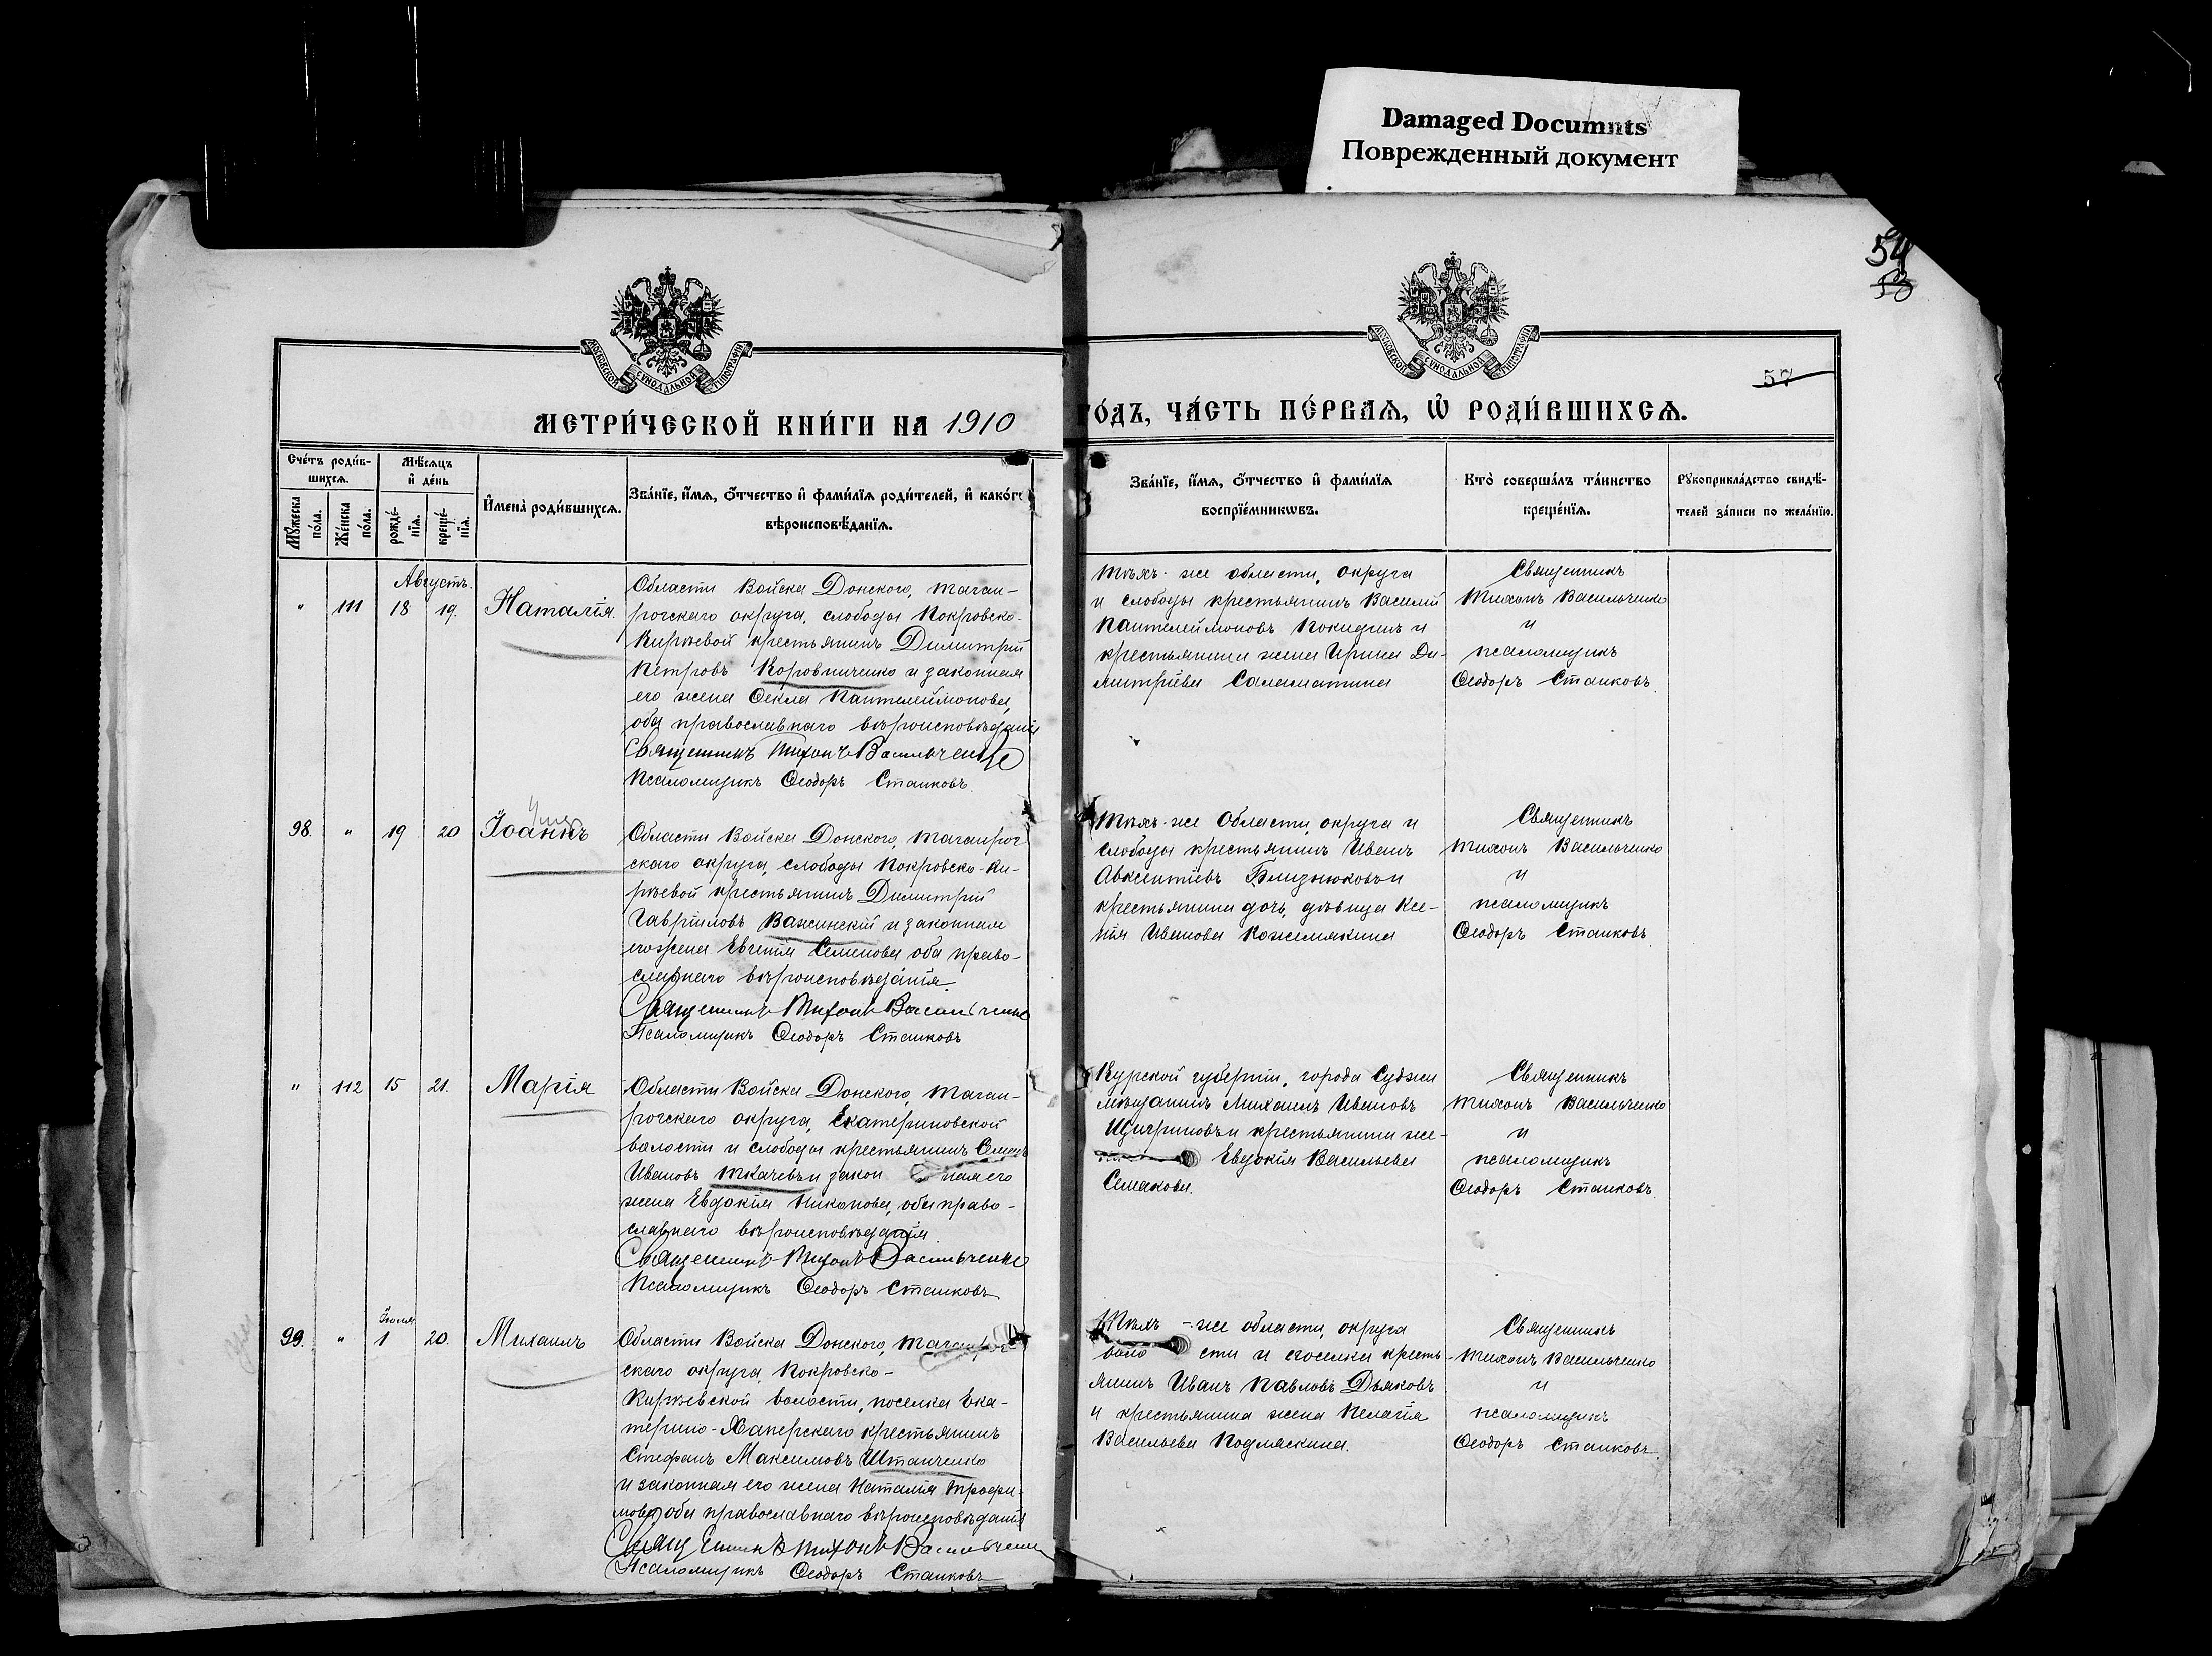 Damaged Documnts
Поврежденный документ
54
53
57
МОСКОВСКОЙ СѴНОДАЛЬНОЙ ТИПОГРАФІИ
МОСКОВСКОЙ СѴНОДАЛЬНОЙ ТИПОГРАФІИ
МЕТРИ́ЧЕСКОЙ КНИ́ГИ НА 1910
ГО́ДЪ, ЧА́СТЬ ПЕ́РВАѦ, Ѽ РОДИ́ВШИХСѦ.
Сче́тъ роди́в-
шихсѧ.
Мѣ́сѧцъ
и҆ де́нь
Мꙋ́жеска
по́ла.
Же́нска
по́ла.
рожде́-
нїѧ.
креще́-
нїѧ.
И҆мена̀ роди́вшихсѧ.
Зва́нїе, и҆́мѧ, ѻ҆́тчество и҆ фами́лїѧ роди́телей, и҆ како́гѡ
вѣроисповѣ́данїѧ.
Зва́нїе, и҆́мѧ, ѻ҆́тчество и҆ фами́лїѧ
воспрїе́мникѡвъ.
Кто̀ соверша́лъ та́инство
креще́нїѧ.
Рꙋкоприкла́дство свидѣ́-
телей за́писи по жела́нїю.
Августъ.
" 111 18 19. Наталія.
Области Войска Донского, Таган-
рогскаго округа, слободы Покровско-
Киреевой крестьянинъ Димитрій
Петровъ Коровниченко и законная
его жена Ѳекла Пантелеймонова,
оба православнаго вѣроисповѣданія
Священникъ Тихонъ Васильченко
Псаломщикъ Ѳеодоръ Станковъ.
Тѣхъ-же области, округа
и слободы крестьянинъ Василій
Пантелеймоновъ Покидинъ и
крестьянина жена Ирина Ди-
митріева Саламатина
Священникъ
Тихонъ Васильченко
и
псаломщикъ
Ѳеодоръ Станковъ.
98. " 19 20 Іоаннъ
Области Войска Донского, Таганрог
скаго округа, слободы Покровско-Ки-
реевой крестьянинъ Димитрій
Гавріиловъ Важинскій и законная
его жена Евгенія Семенова оба право-
славнаго вѣроисповѣданія.
Священникъ Тихонъ Васильченко
Псаломщикъ Ѳеодоръ Станковъ
Тѣхъ-же Области, округа и
слободы крестьянинъ Иванъ
Авксентіевъ Близнюковъ и
крестьянина дочь, дѣвица Ксе-
нія Иванова Кожемякина
Священникъ
Тихонъ Васильченко
и
псаломщикъ
Ѳеодоръ Станковъ
" 112 15 21. Марія
Области Войска Донского, Таган-
рогскаго округа, Екатериновской
волости и слободы крестьянинъ Семенъ
Ивановъ Ткачевъ и закон ная его
жена Евдокія Никонова, оба право-
славнаго вѣроисповѣданія.
Священникъ Тихонъ Васильченко
Псаломщикъ Ѳеодоръ Станковъ
Курской губерніи, города Суджи
мѣщанинъ Михаилъ Ивановъ
и крестьянина же-
Евдокія Васильева
Семакова.
Священникъ
Тихонъ Васильченко
и
псаломщикъ
Ѳеодоръ Станковъ.
Іюля
99. " 1 20. Михаилъ
Области Войска Донского, Таганрог
скаго округа, Покровско-
Киреевской волости, поселка Ека-
терино-Хаперскаго крестьянинъ
Стефанъ Максимовъ Штанченко
и законная его жена Наталія Трофи-
мова, оба православнаго вѣроисповѣданія
Священникъ Тихонъ Васильченко
Псаломщикъ Ѳеодоръ Станковъ
Тѣхъ-же области, округа
воло сти и поселка кресть-
янинъ Иванъ Павловъ Дьяковъ
и крестьянина жена Пелагія
Васильева Подмаскина.
Священникъ
Тихонъ Васильченко
и
псаломщикъ
Ѳеодоръ Станковъ.